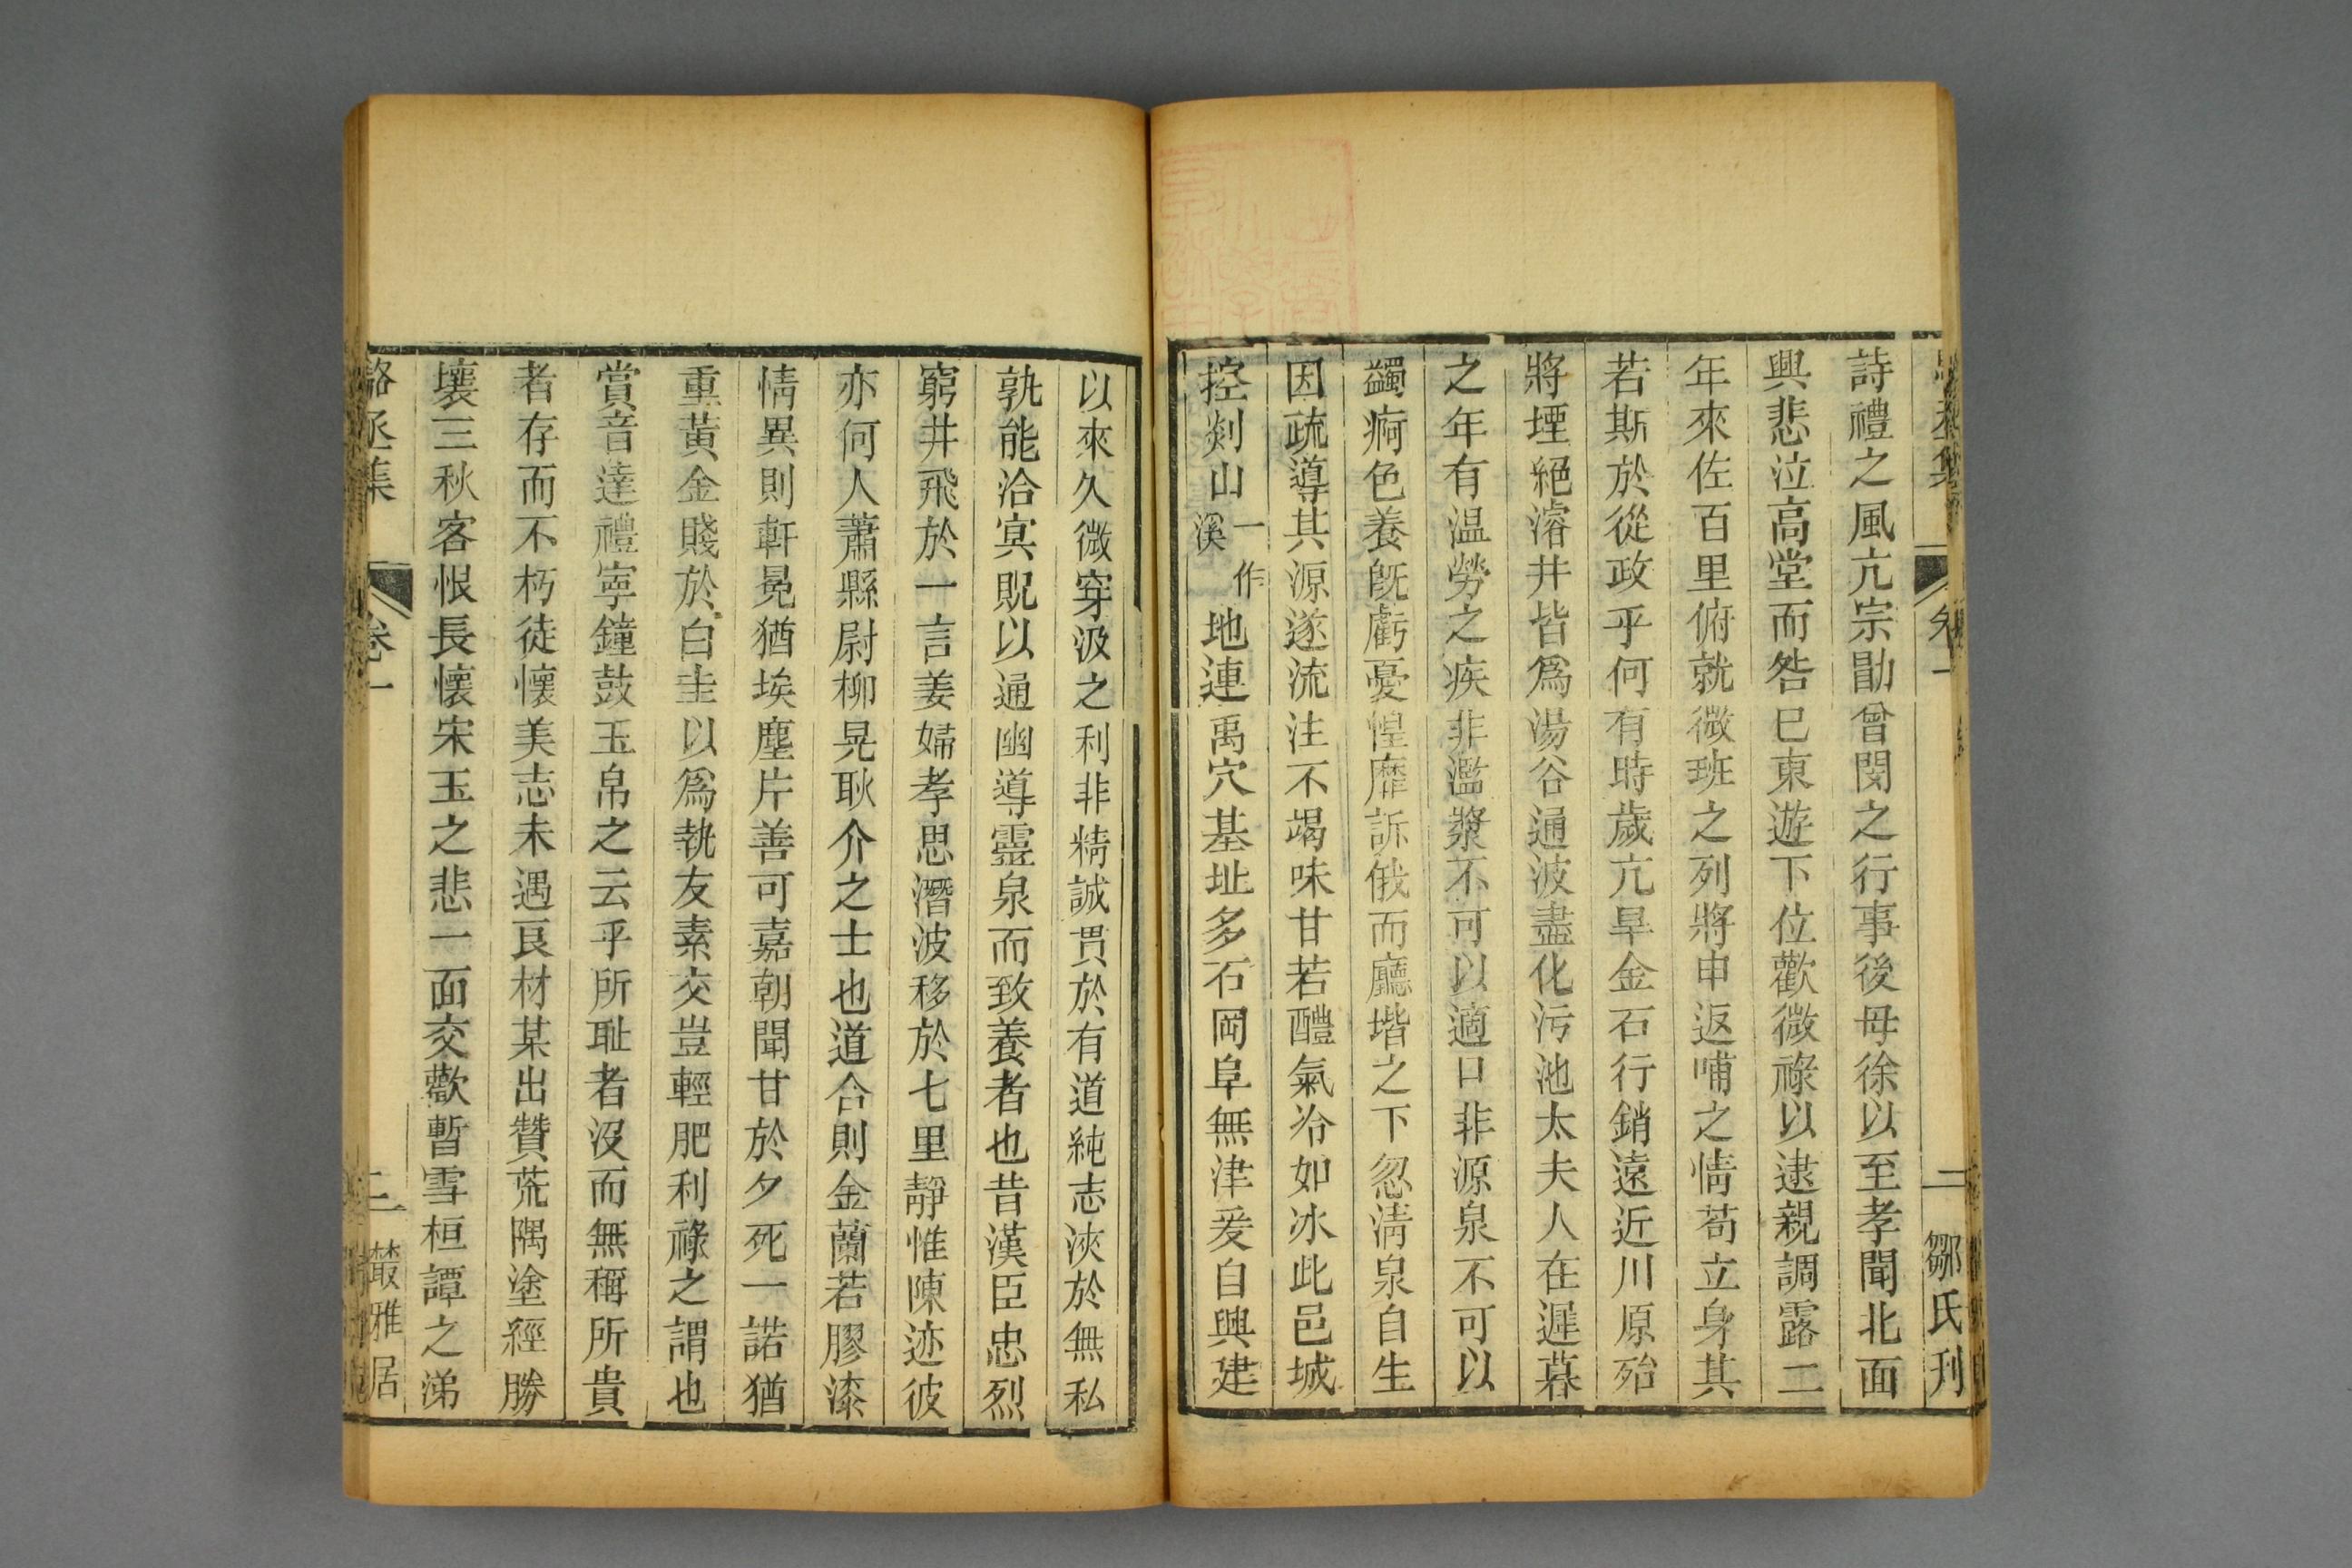 詩禮之風亢宗勖曾閔之行事後母徐以至孝聞北面
興悲泣高堂而咎巳東遊下位歡微祿以逮親調露二
年來佐百里俯就微班之列將申返哺之情苟立身其
若斯於從政乎何有時歲亢旱金石行銷遠近川原殆
將堙絕濬井皆爲湯谷通波盡化污池太夫人在遲暮
之年有温勞之疾非濫漿不可以適口非源泉不可以
蠲痾色養旣虧憂惶靡訴俄而廳堦之下忽淸泉自生
因疏導其源遂流注不竭味甘若醴氣冷如冰此邑城
控剡山一作溪地連禹穴基址多石岡阜無津爰自興建
二 鄒氏刋
以來久微穿汲之利非精誠貫於有道純志浹於無私
孰能洽㝠貺以通幽導靈泉而致養者也昔漢臣忠烈
窮井飛於一言姜婦孝思潛波移於七里靜惟陳迹彼
亦何人蕭縣尉柳晃耿介之士也道合則金蘭若膠漆
情異則軒冕猶埃塵片善可嘉朝聞甘於夕死一諾猶
重黃金賤於白圭以爲執友素交豈輕肥利祿之謂也
賞音達禮寧鐘鼓玉帛之云乎所耻者沒而無稱所貴
者存而不朽徒懷美志未遇良材某出贊荒隅塗經勝
壤三秋客恨長懷宋玉之悲一面交歡暫雪桓譚之涕
駱丞集 卷一 二 叢雅居